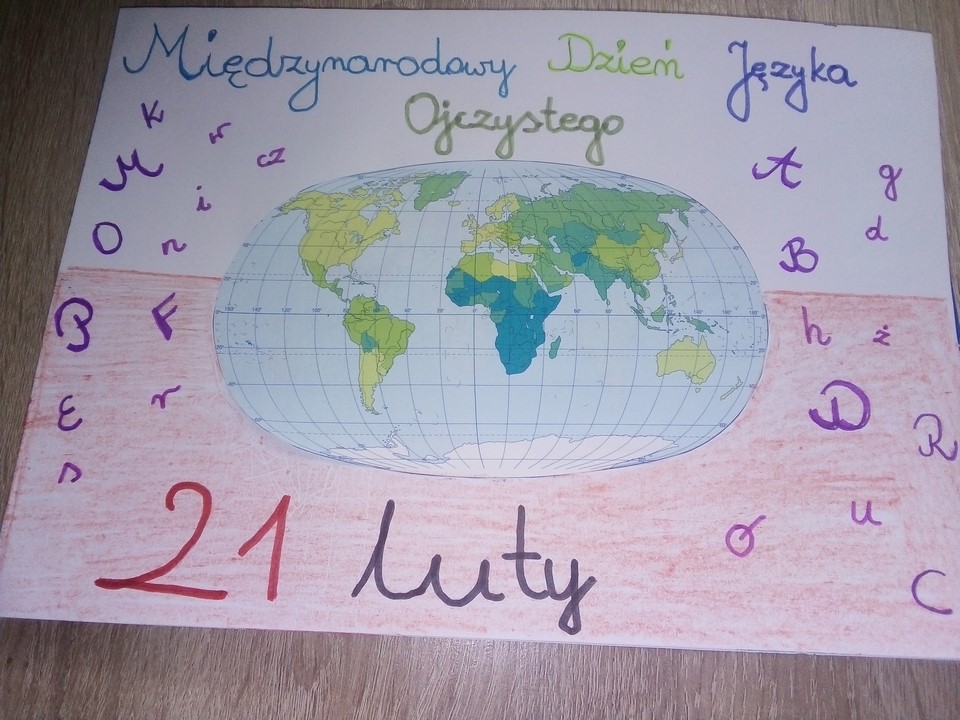 Międzynarodowy Dzień Języka
Ojczystego
K
w
cz
M
i
O
n
A
g
d
B
B
F
E
r
s
h
ż
D
R
21 luty
u
C